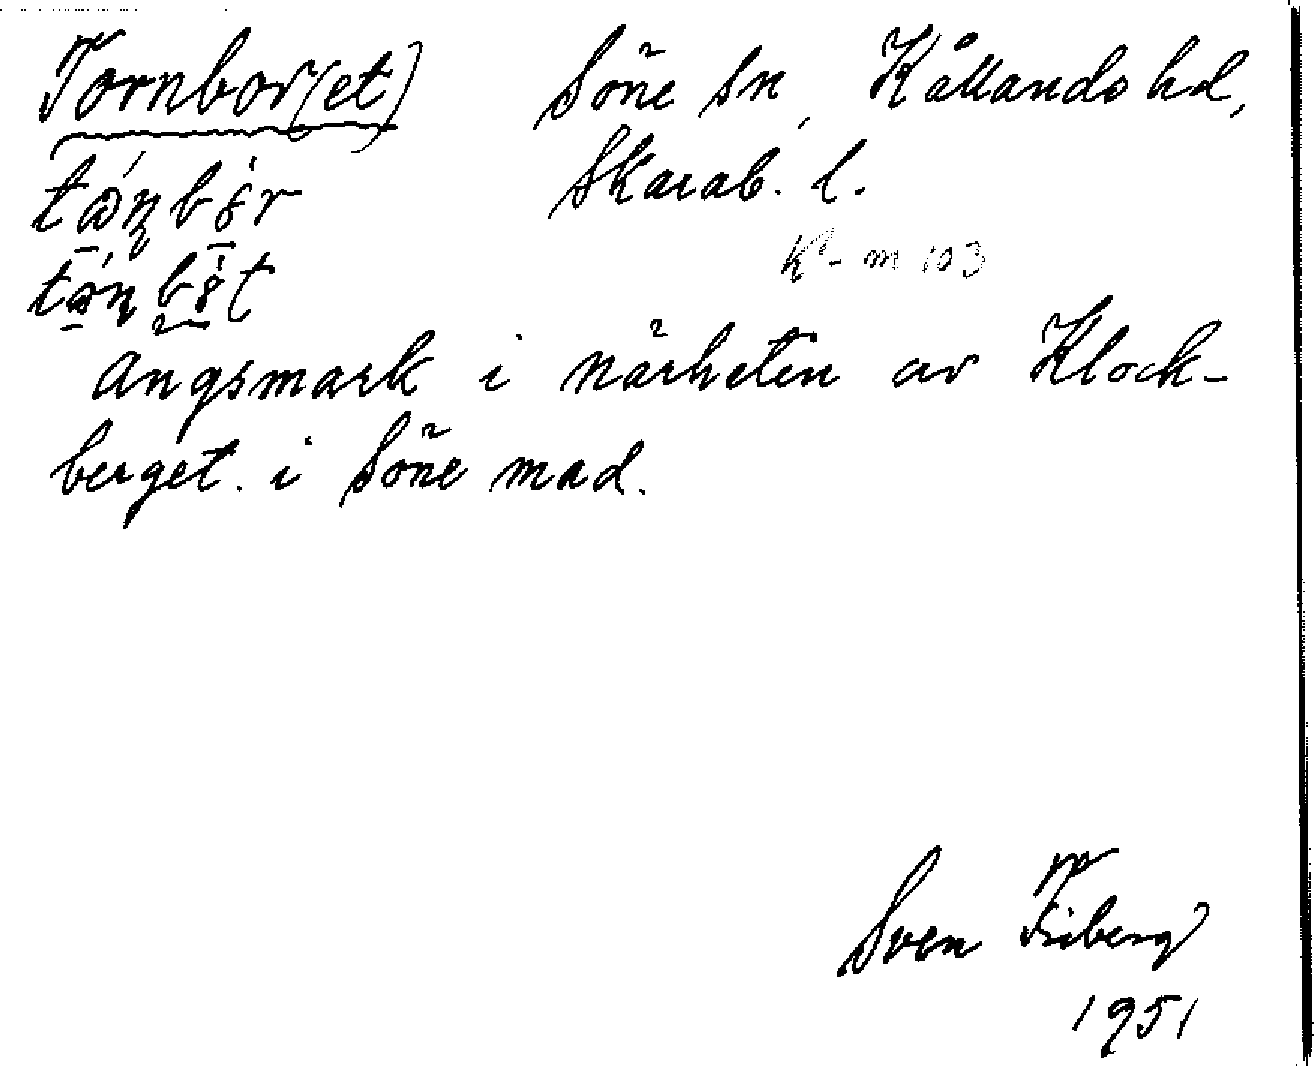 Tornbor(et) Söne sn, Kållands hd,
Skarab. l.
K - m 103
Ängsmark i närheten av Klock-
berget i Söne mad.
Sven Friberg
1951